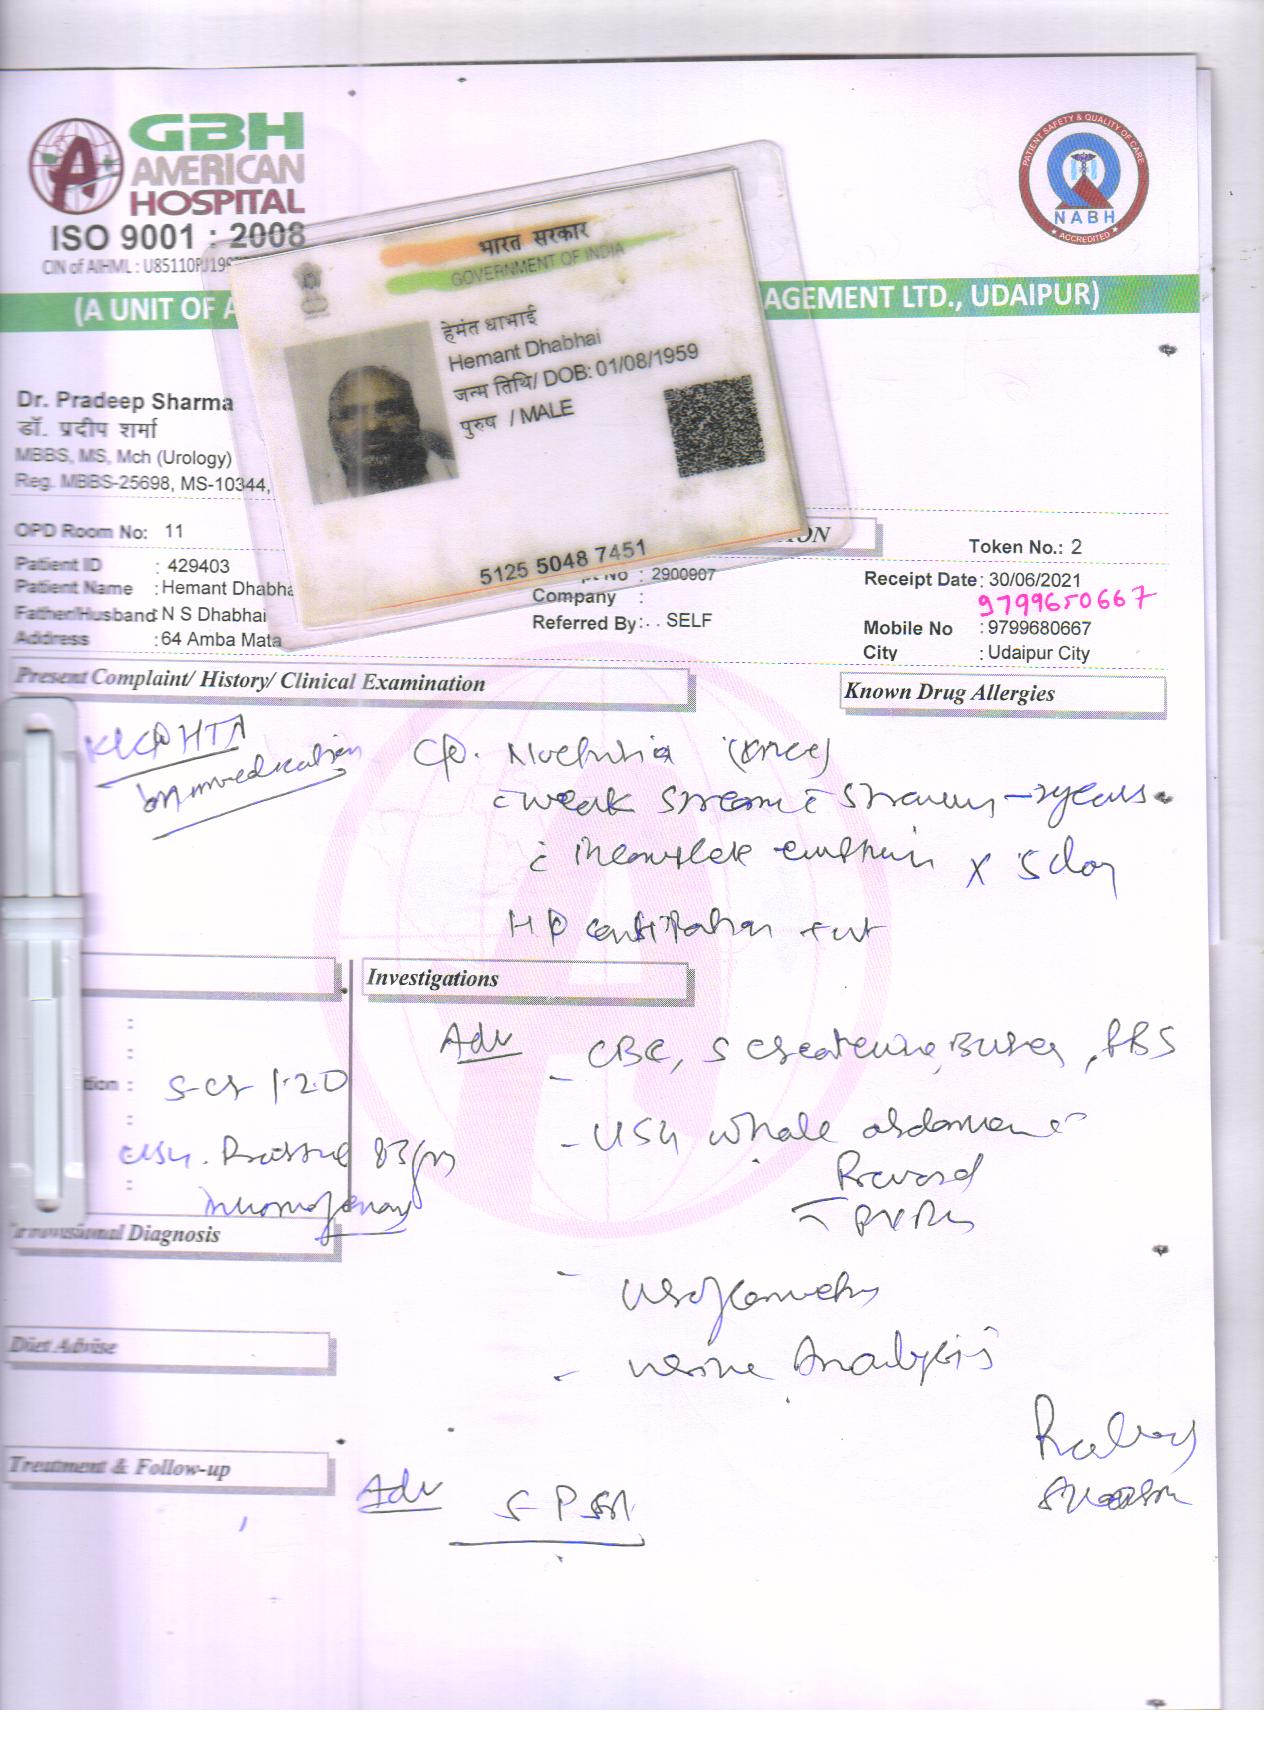 GBH
AMERICAN
HOSPITAL
ISO 9001 : 2008
CIN of AIHML : U85110RJ199
(A UNIT OF A
AGEMENT LTD., UDAIPUR)
PATIENT SAFETY & QUALITY OF CARE
NABH
ACCREDITED
भारत सरकार
GOVERNMENT OF INDIA
हेमंत धाभाई
Hemant Dhabhai
जन्म तिथि/ DOB: 01/08/1959
पुरुष / MALE
5125 5048 7451
Dr. Pradeep Sharma
डॉ. प्रदीप शर्मा
MBBS, MS, Mch (Urology)
Reg. MBBS-25698, MS-10344,
OPD Room No: 11
ION
Token No.: 2
Patient ID : 429403
No : 2900907
Receipt Date : 30/06/2021
9799650667
Patient Name : Hemant Dhabha
Company :
Father/Husband : N S Dhabhai
Referred By : . . SELF
Mobile No : 9799680667
Address : 64 Amba Mata
City : Udaipur City
Present Complaint/ History/ Clinical Examination
Known Drug Allergies
HTN
on medication
C/o. Nocturia
weak stream straining - years
incomplete x 5 day
H/o constipation
Investigations
Adv
- CBC, S creatinine, B urea, RBS
tion : S-Cr 1.20
- USG whole abdomen
USG. Prostate 83 gm
PVRU
Provisional Diagnosis
- Uroflowmetry
Diet Advise
- urine Analysis
Treatment & Follow-up
Adv S-PSA